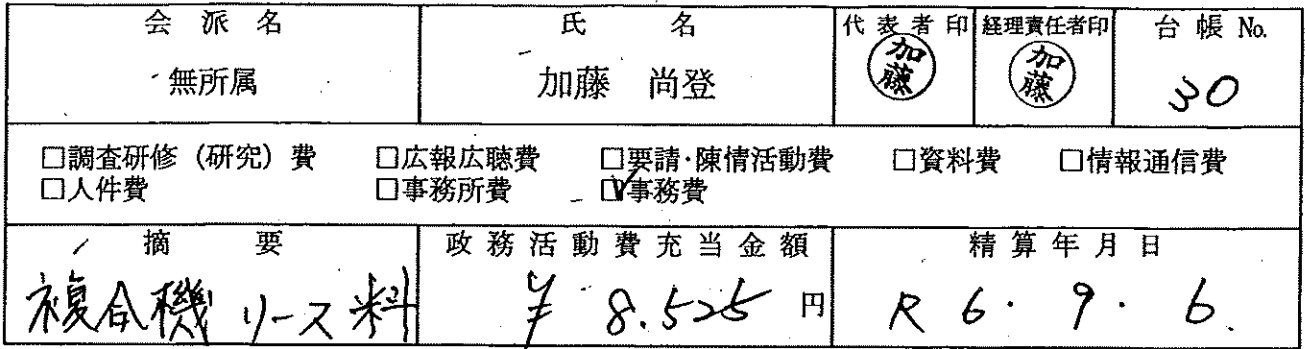 会派名 氏名 代表者印 経理責任者印 台帳No.
無所属 加藤 尚登 加藤 加藤 30
□調査研修(研究)費 □広報広聴費 □要請・陳情活動費 □資料費 □情報通信費
□人件費 □事務所費 ☑事務費
摘要 政務活動費充当金額 精算年月日
複合機リース料 ¥8.525円 R6.9.6.